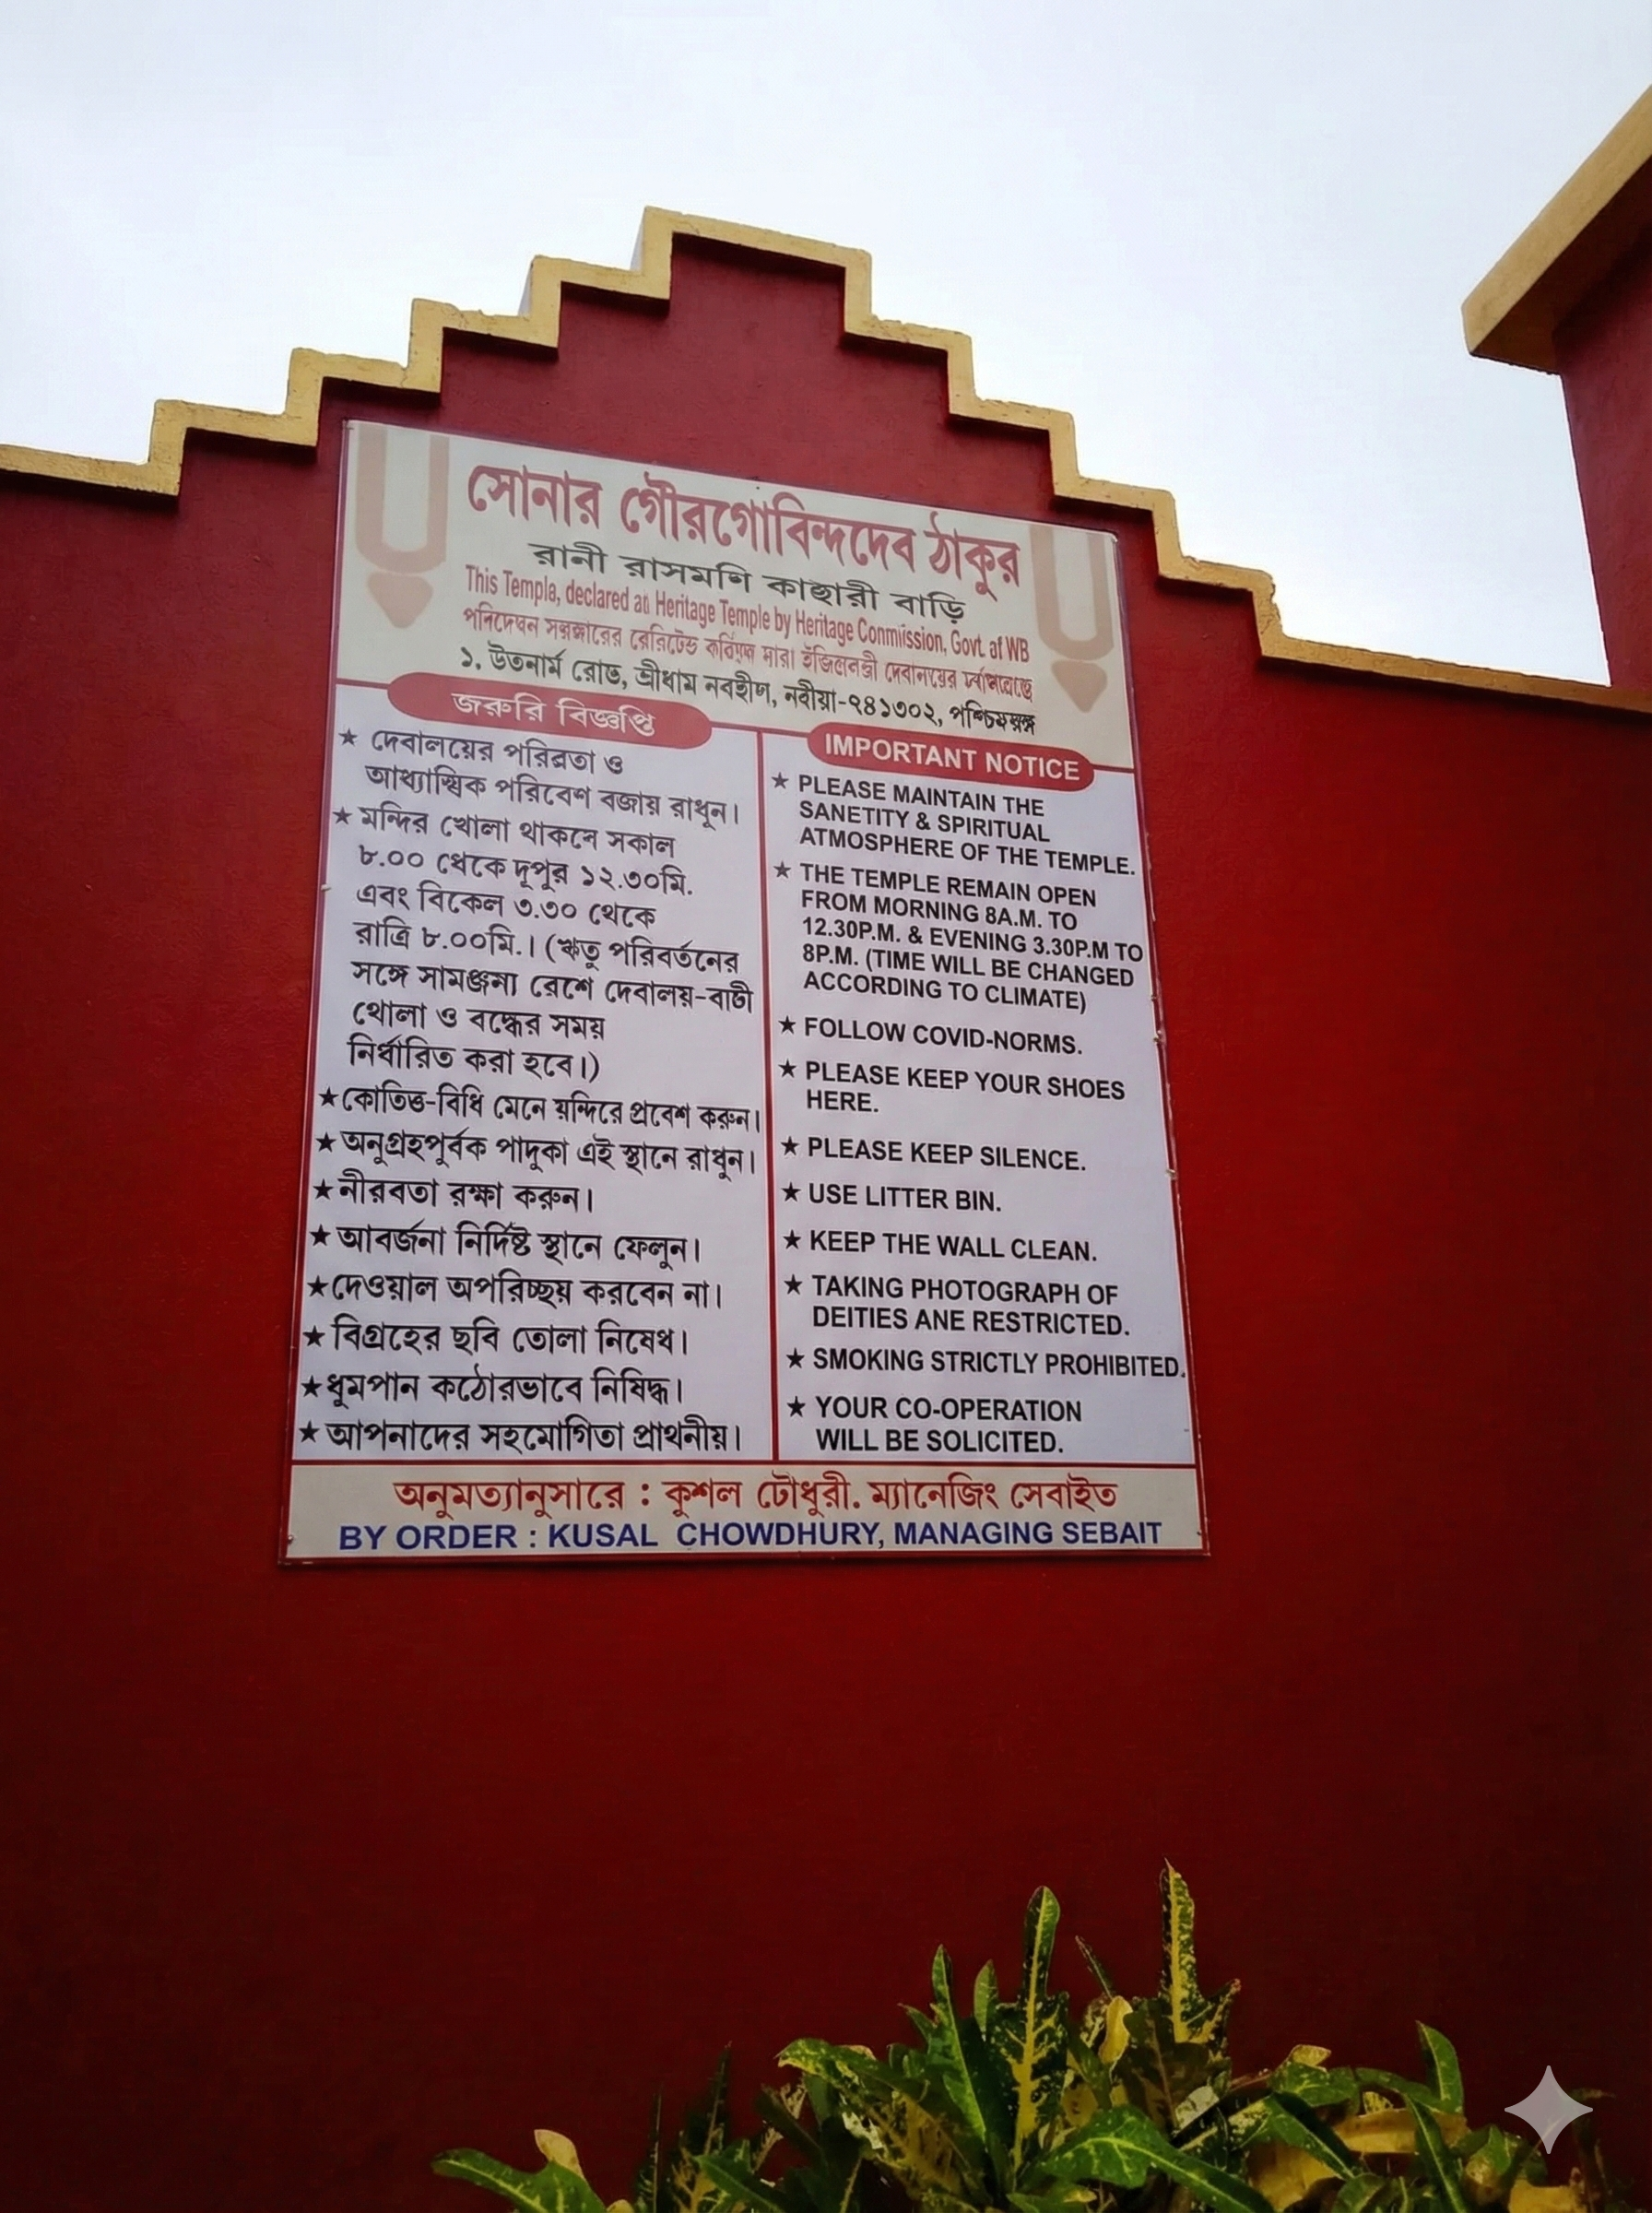 সোনার গৌরগোবিন্দদেব ঠাকুর
রানী রাসমণি কাছারী বাড়ি
This Templa, declared an Heritage Temple by Heritage Conmiission, Govt. af WB
১. রোড, শ্রীধাম নবদ্বীপ, নবীয়া-৭৪১৩০২,
জরুরি বিজ্ঞপ্তি
★ দেবালয়ের পরিত্রতা ও
আধ্যাত্মিক পরিবেশ বজায় রাখুন।
★ মন্দির খোলা থাকবে সকাল
৮.০০ থেকে দুপুর ১২.৩০মি.
এবং বিকেল ৩.৩০ থেকে
রাত্রি ৮.০০মি.। (ঋতু পরিবর্তনের
সঙ্গে রেশে দেবালয়-বাটী
খোলা ও বন্ধের সময়
নির্ধারিত করা হবে।)
★ কোভিড-বিধি মেনে মন্দিরে প্রবেশ করুন।
★ অনুগ্রহপূর্বক পাদুকা এই স্থানে রাখুন।
★ নীরবতা রক্ষা করুন।
★ আবর্জনা নির্দিষ্ট স্থানে ফেলুন।
★ দেওয়াল অপরিচ্ছন্ন করবেন না।
★ বিগ্রহের ছবি তোলা নিষেধ।
★ ধুমপান কঠোরভাবে নিষিদ্ধ।
★ আপনাদের সহযোগিতা প্রাথনীয়।
IMPORTANT NOTICE
★ PLEASE MAINTAIN THE
SANETITY & SPIRITUAL
ATMOSPHERE OF THE TEMPLE.
★ THE TEMPLE REMAIN OPEN
FROM MORNING 8A.M. TO
12.30P.M. & EVENING 3.30P.M TO
8P.M. (TIME WILL BE CHANGED
ACCORDING TO CLIMATE)
★ FOLLOW COVID-NORMS.
★ PLEASE KEEP YOUR SHOES
HERE.
★ PLEASE KEEP SILENCE.
★ USE LITTER BIN.
★ KEEP THE WALL CLEAN.
★ TAKING PHOTOGRAPH OF
DEITIES ANE RESTRICTED.
★ SMOKING STRICTLY PROHIBITED.
★ YOUR CO-OPERATION
WILL BE SOLICITED.
অনুমত্যানুসারে : কুশল চৌধুরী. ম্যানেজিং সেবাইত
BY ORDER : KUSAL CHOWDHURY, MANAGING SEBAIT